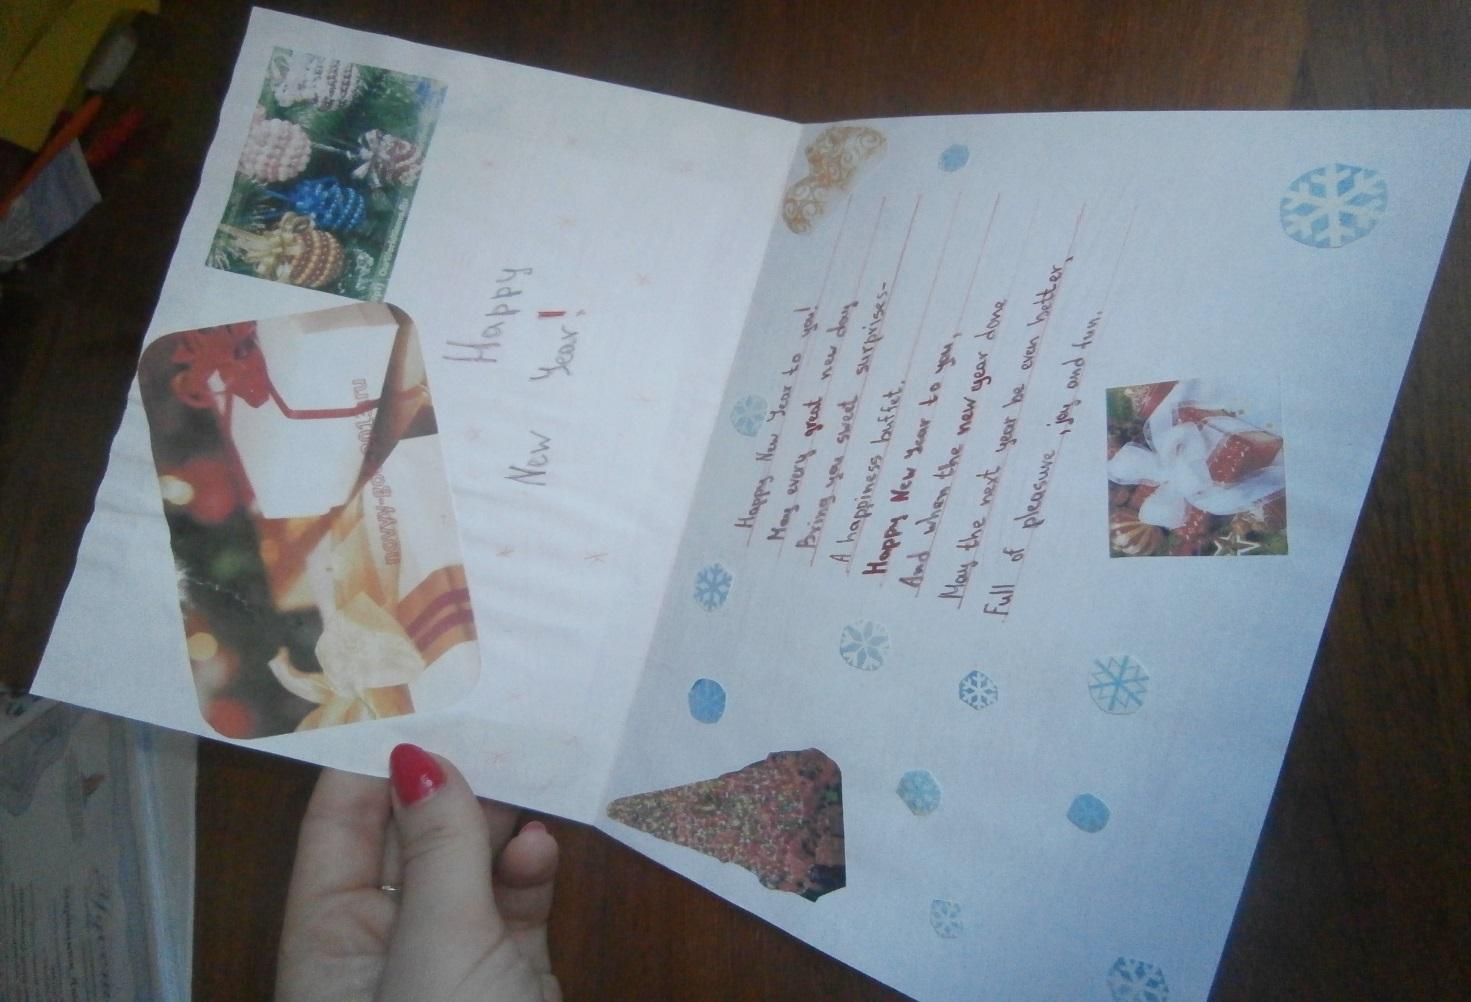 Happy
New Year!
Happy New Year to you!
May every great new day
Bring you sweet surprises-
A happiness buffet.
Happy New Year to you,
And when the new year done
May the next year be even better,
Full of pleasure, joy and fun.